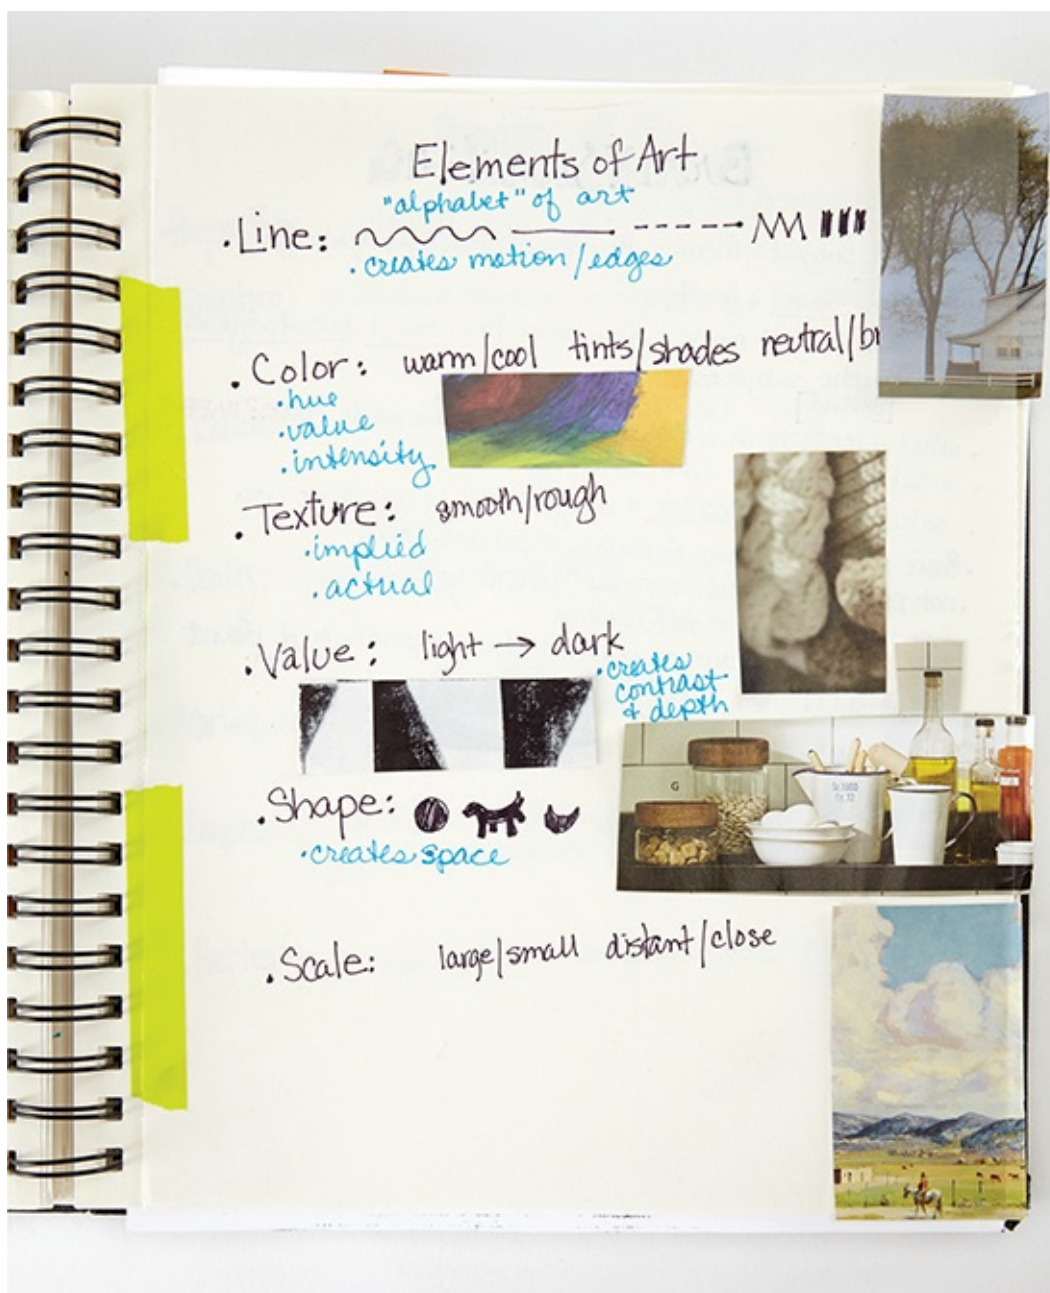 Elements of Art
"alphabet" of art
• Line:
• creates motion/edges
• Color: warm/cool tints/shades neutral/br
• hue
• value
• intensity
• Texture: smooth/rough
• implied
• actual
• Value: light → dark
• creates
contrast
& depth
• Shape:
• creates space
G
• Scale: large/small distant/close